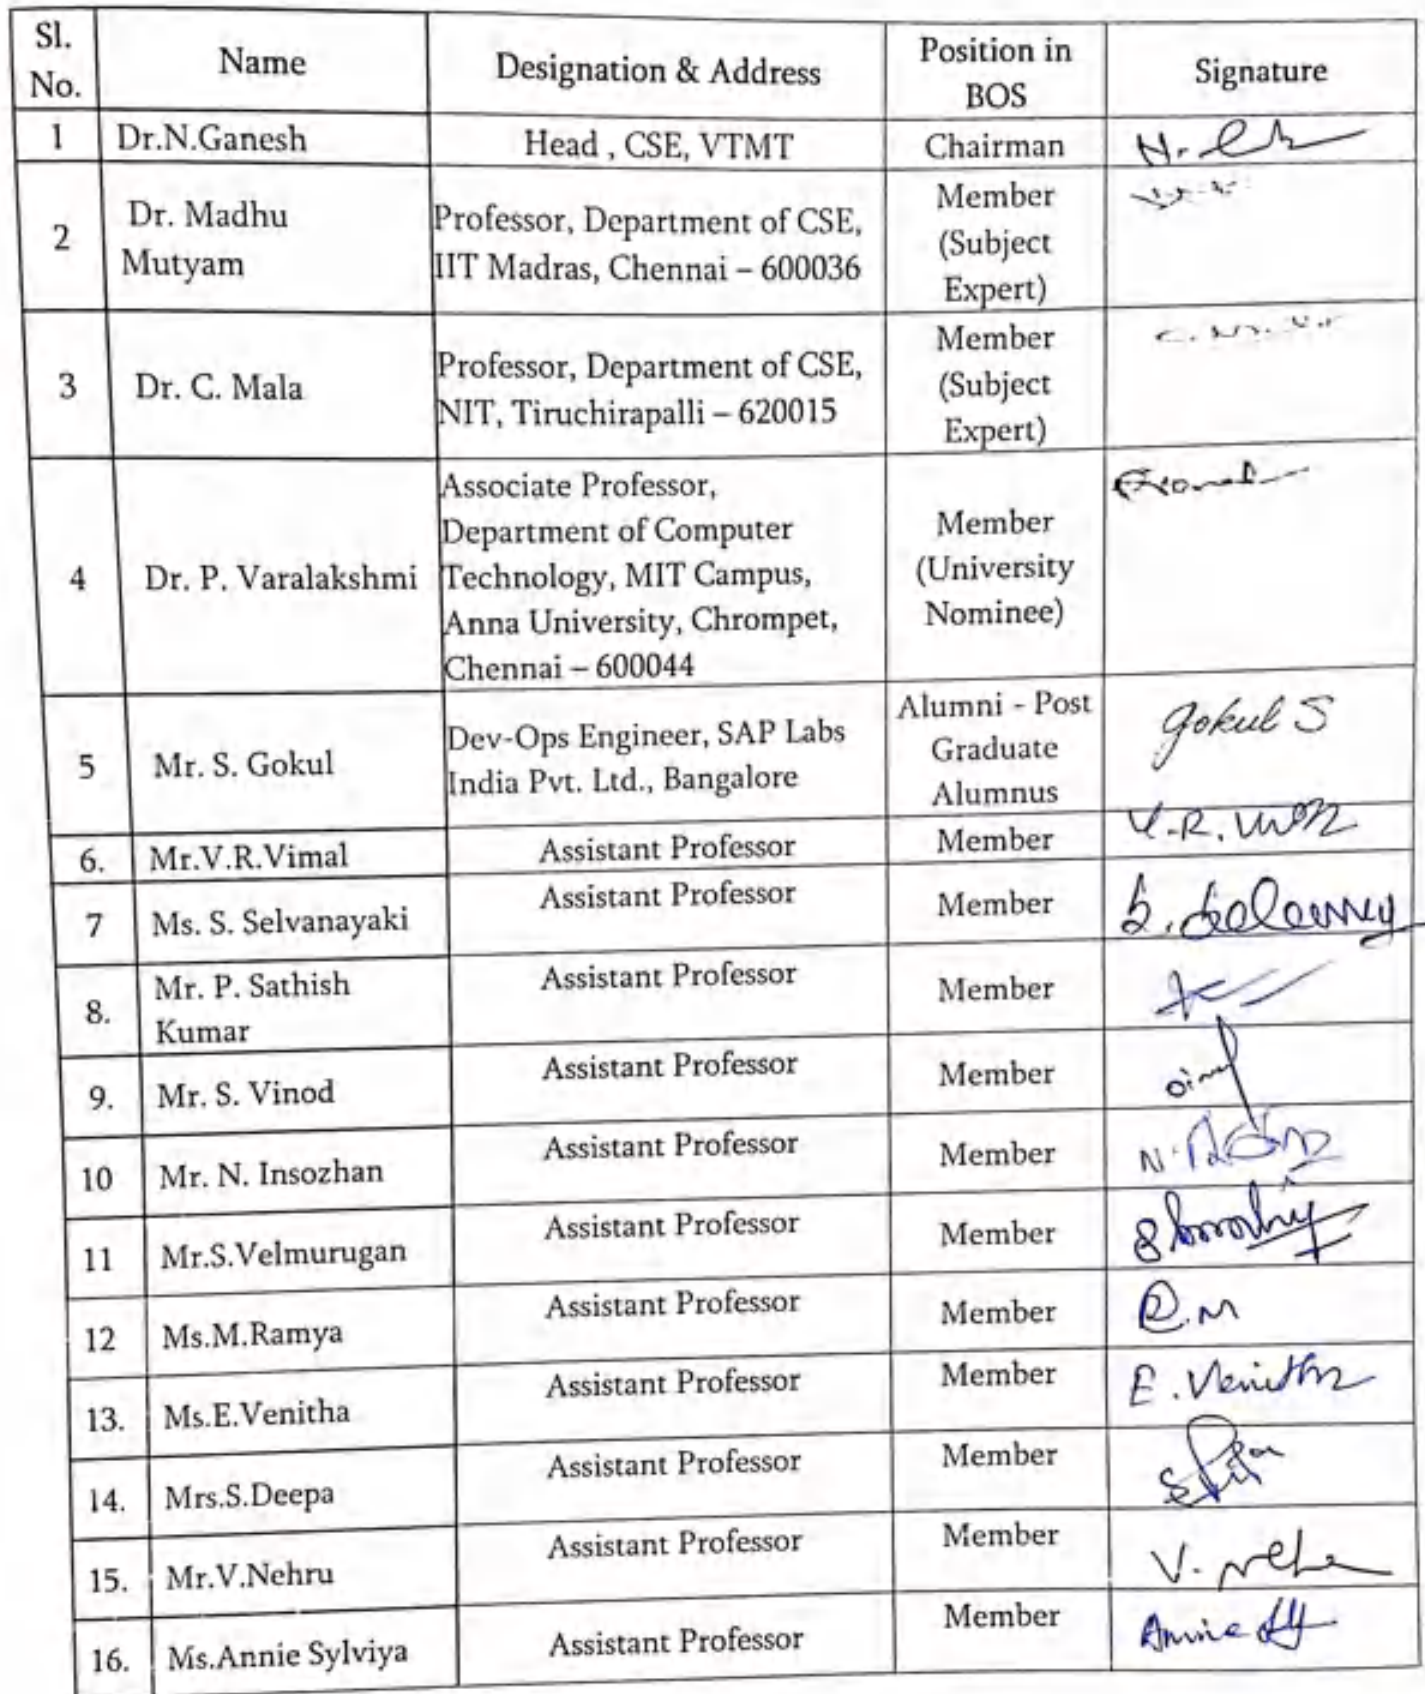 Sl. No. Name Designation & Address Position in BOS Signature
1 Dr.N.Ganesh Head , CSE, VTMT Chairman
2 Dr. Madhu Mutyam Professor, Department of CSE, IIT Madras, Chennai – 600036 Member (Subject Expert)
3 Dr. C. Mala Professor, Department of CSE, NIT, Tiruchirapalli – 620015 Member (Subject Expert)
4 Dr. P. Varalakshmi Associate Professor, Department of Computer Technology, MIT Campus, Anna University, Chrompet, Chennai – 600044 Member (University Nominee)
5 Mr. S. Gokul Dev-Ops Engineer, SAP Labs India Pvt. Ltd., Bangalore Alumni - Post Graduate Alumnus Gokul S
6. Mr.V.R.Vimal Assistant Professor Member
7 Ms. S. Selvanayaki Assistant Professor Member
8. Mr. P. Sathish Kumar Assistant Professor Member
9. Mr. S. Vinod Assistant Professor Member
10 Mr. N. Insozhan Assistant Professor Member
11 Mr.S.Velmurugan Assistant Professor Member
12 Ms.M.Ramya Assistant Professor Member R.M
13. Ms.E.Venitha Assistant Professor Member E. Venitha
14. Mrs.S.Deepa Assistant Professor Member
15. Mr.V.Nehru Assistant Professor Member
16. Ms.Annie Sylviya Assistant Professor Member